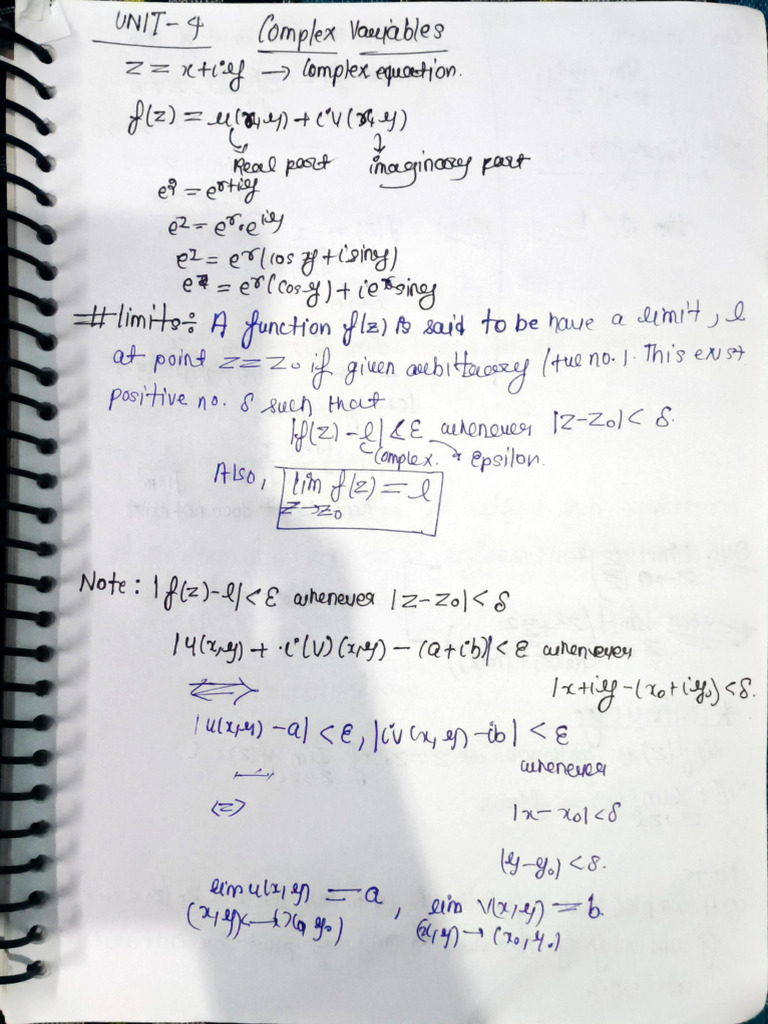 UNIT-4 Complex Variables
z = x+iy → Complex equation.
f(z) = u(x,y) + iv(x,y)
Real part imaginary part
e^z = e^x+iy
e^z = e^x·e^iy
e^z = e^x(cos y + i siny)
e^z = e^x(cos y) + ie^x siny
# limits÷ A function f(z) is said to be have a limit, l
at point z = z₀ if given arbitrary (+ve no.). This exist
positive no. δ such that
|f(z) - l| < ε whenever |z-z₀| < δ.
Complex. → Epsilon.
Also, lim f(z) = l
z→z₀
Note: |f(z)-l| < ε whenever |z-z₀| < δ
|u(x,y) + i(v)(x,y) - (a+ib)| < ε whenever
|x+iy-(x₀+iy₀) < δ.
⟺
|u(x,y) - a| < ε, |iv(x,y) - ib| < ε
whenever
⟺ |x-x₀| < δ
|y-y₀) < δ.
lim u(x,y) = a, lim v(x,y) = b.
(x,y) → (x₀,y₀) (x,y) → (x₀,y₀)